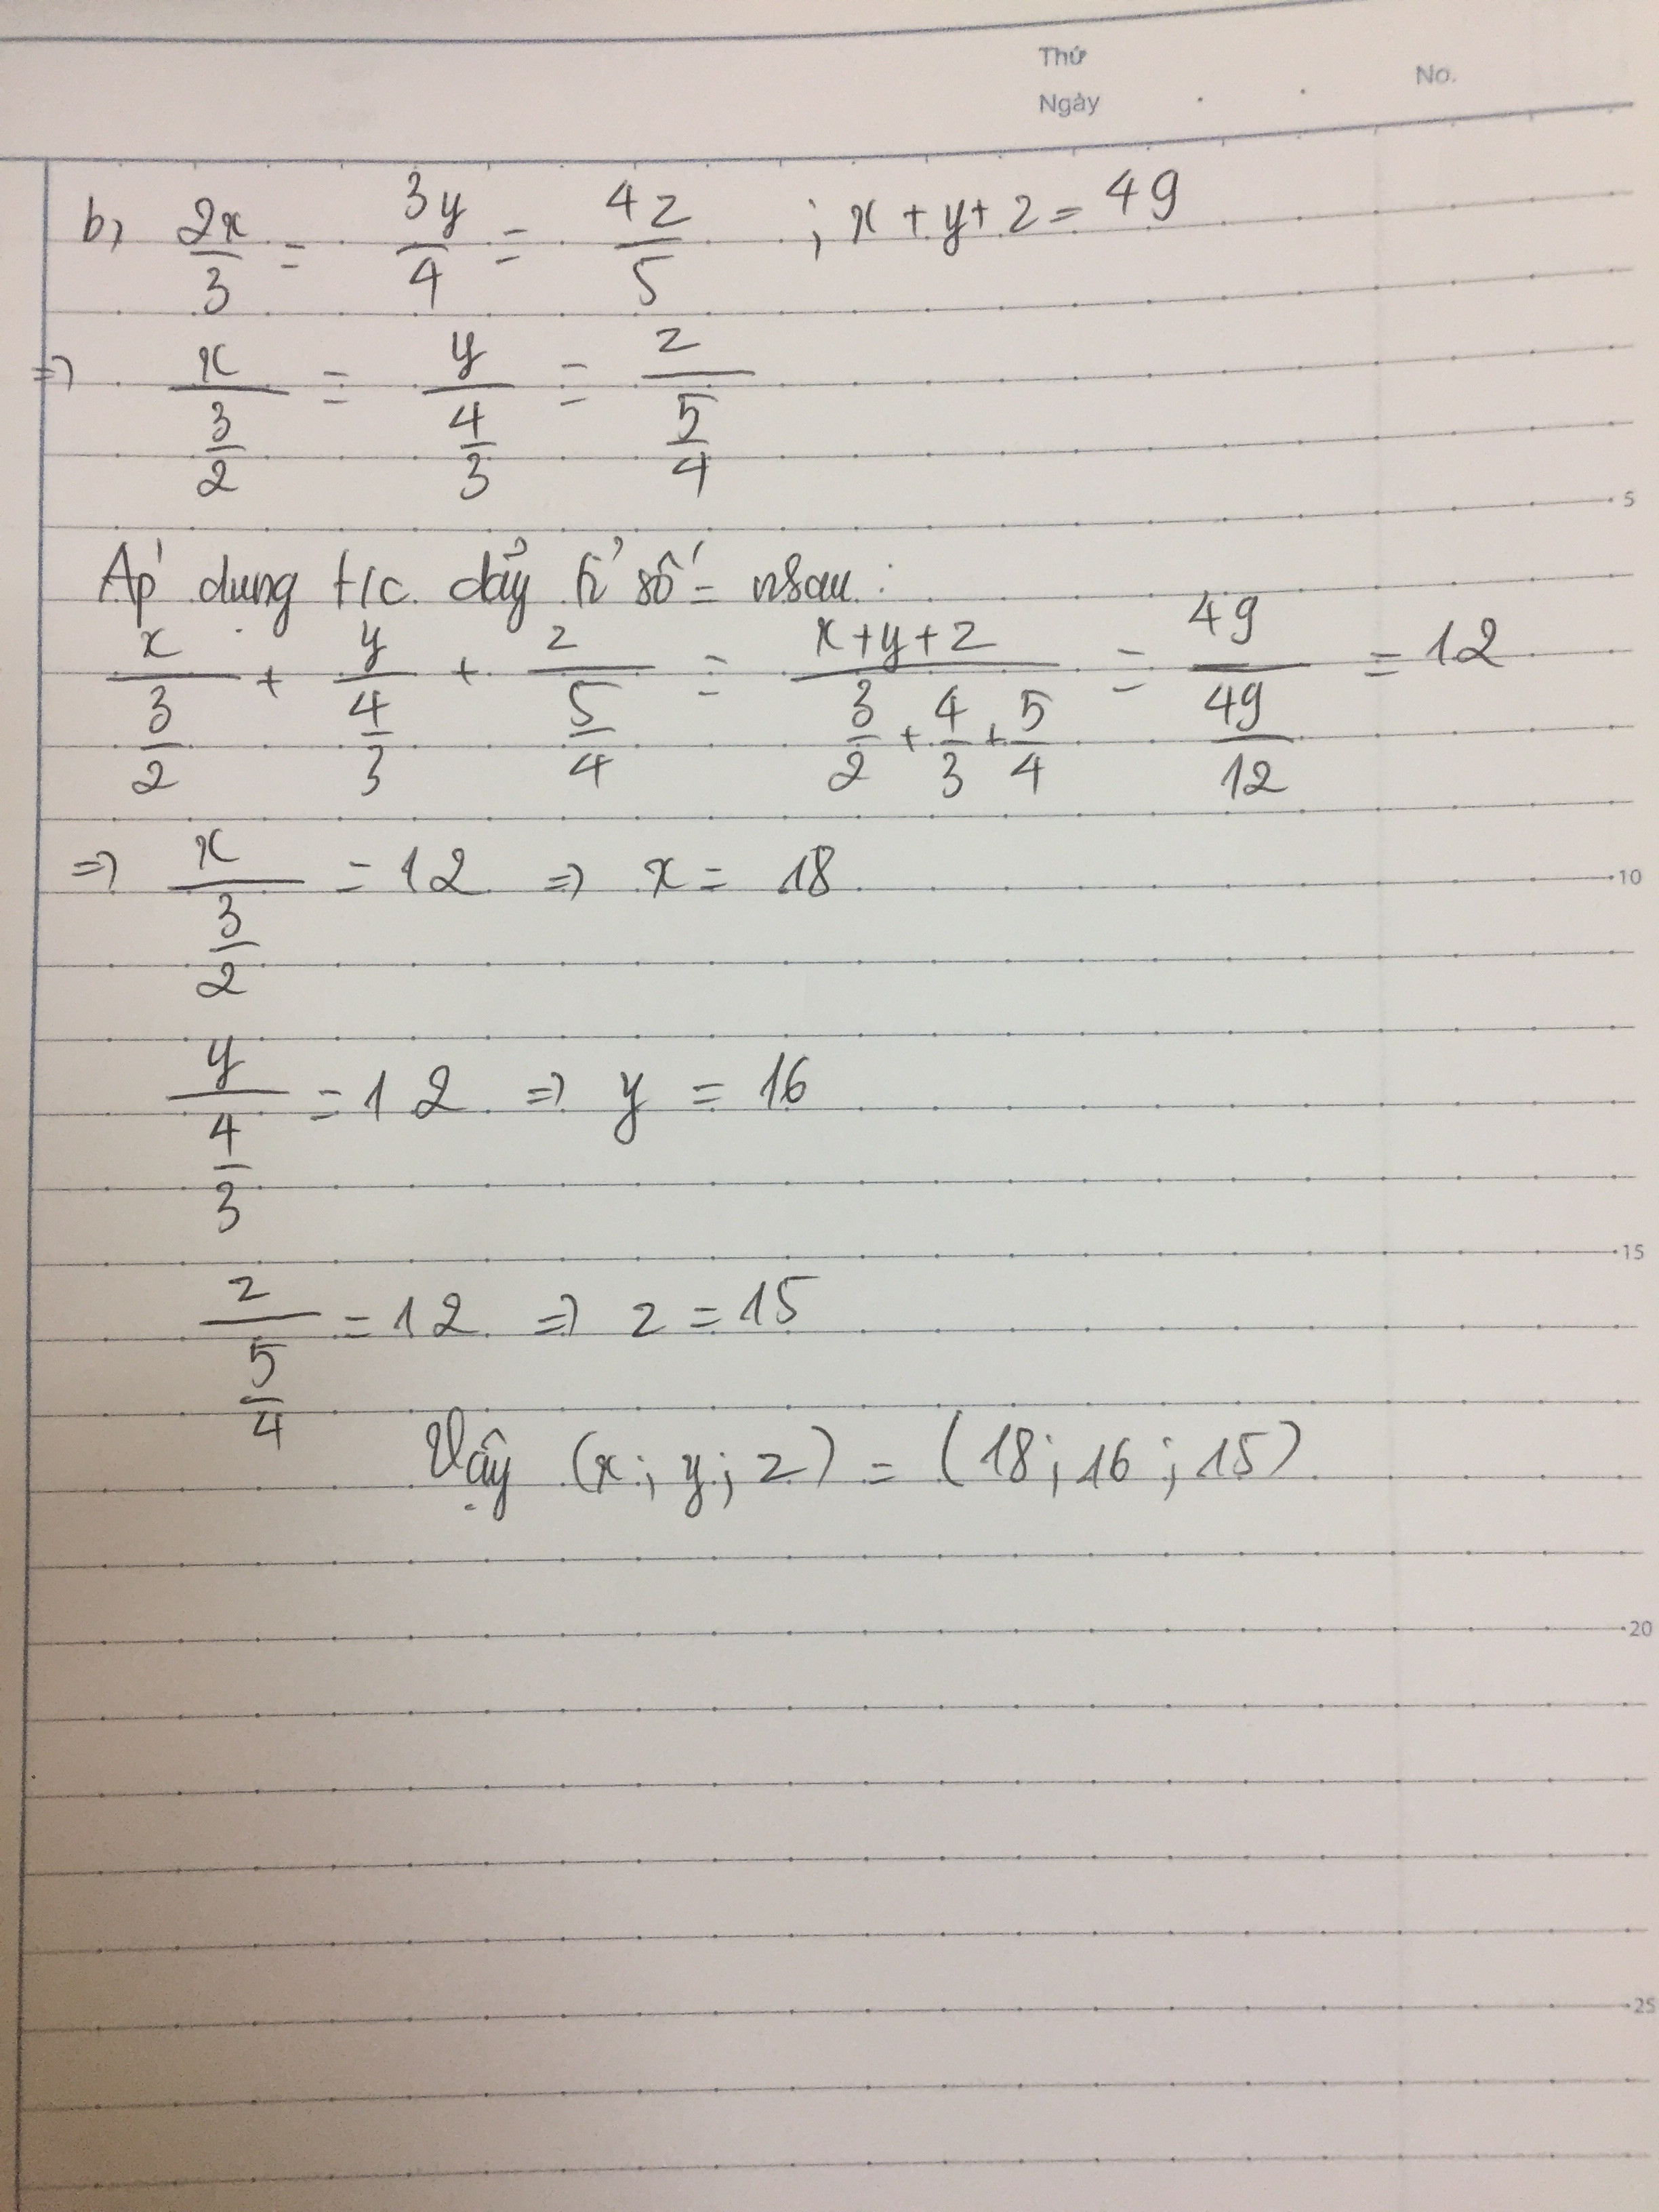 Thứ
Ngày . . No.
b, 2x/3 = 3y/4 = 4z/5 ; x + y + z = 49
=> x/(3/2) = y/(4/3) = z/(5/4)
5
Áp dụng t/c dãy tỉ số = nhau :
x/(3/2) + y/(4/3) + z/(5/4) = (x+y+z)/(3/2 + 4/3 + 5/4) = 49/(49/12) = 12
=> x/(3/2) = 12 => x = 18
10
y/(4/3) = 12 => y = 16
15
z/(5/4) = 12 => z = 15
Vậy (x; y; z) = (18; 16; 15)
20
25